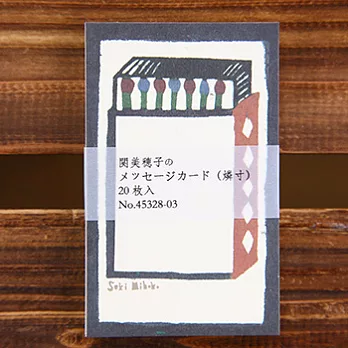 関美穂子の
メッセージカード（燐寸）
20枚入
No.45328-03
Seki Mihoko